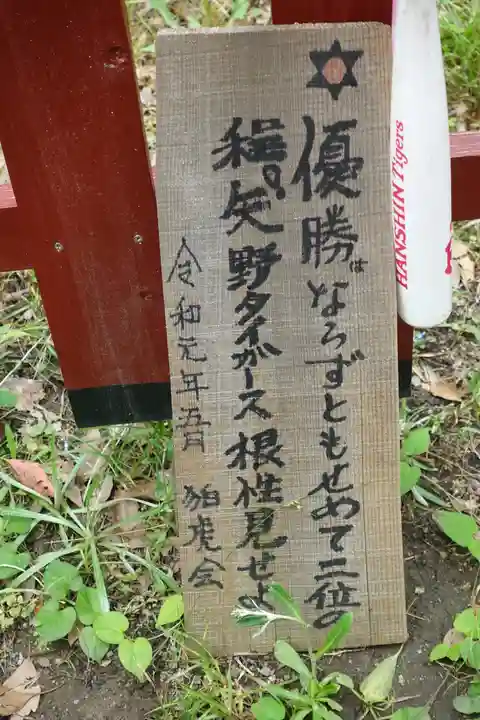 優勝はならずともせめて二位の
稲。矢野タイガース根性見せよ
令和元年五月 狛虎会
HANSHIN Tigers